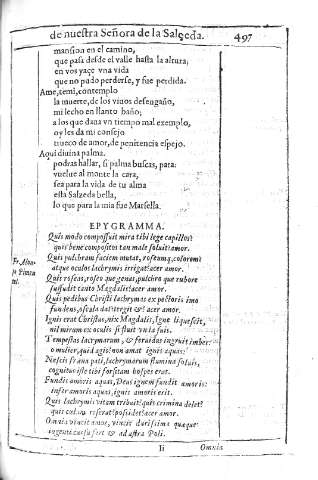 de nuestra Señora de la Salçeda. 497
mansion en el camino,
que passa desde el valle hasta la altura,
en vos yaçe vna vida
que no pudo perderse, y fue perdida.
Ame, temi, contemplo
la muerte, de los viuos desengaño,
mi lecho en llanto baño;
a los que daua vn tiempo mal exemplo,
oy les da mi consejo
trueco de amor, de penitencia espejo.
Aqui diuina palma.
podras hallar, si palma buscas, para:
vuelue al monte la cara,
sea para la vida de tu alma
esta Salzeda bella,
lo que para la mia fue Marsella.
EPYGRAMMA.
Quis modo compossuit mira tibi lege capillos?
quis bene compositos tan male soluit? amor.
Quis pulchram faciem mutat, rostumq; colorem?
atque oculos lachrymis irrigat? acer amor.
Quis roseas, roseo que genas, pulchro que rubore
suffudit tanto Magdalis? acer amor.
Quis pedibus Christi lachrymas ex pectoris imo
fundens, oscula dat? tergit &? acer amor.
Ignis erat Christus, nix Magdalis, Igne liquescit,
nil mirum ex oculis si fluit vnda suis.
Tempestas lacrymarum, & feruidus ingruit imber
o mulier, quid agis? non amat ignis aquas?
Nescis si ana pati, lachrymarum flumina soluis,
cognitus iste tibi forsitam hospes erat.
Fundis amoris aquas, Deus ignem fundit amoris:
inter amoris aquas, ignis amoris erit.
Quis lachrymis vitam tribuit? quis crimina delet?
quis reserat? possidet? acer amor.
Omnia vincit amor, vincit durissima quæque
& ad astra Poli.
Ii Omnia